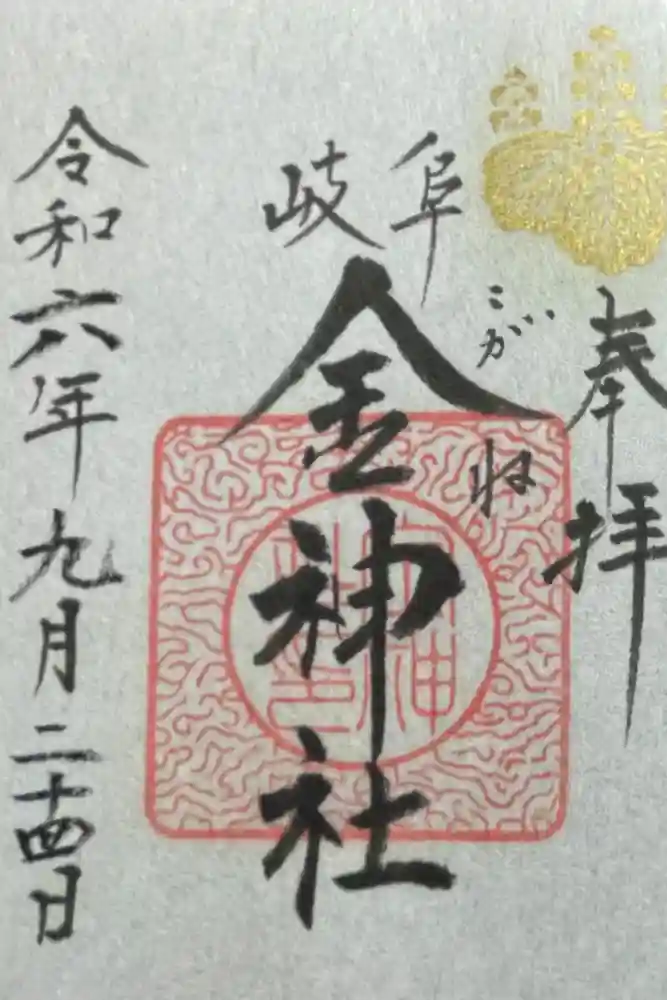 奉拝
こがね
岐阜
金神社
令和六年九月二十四日